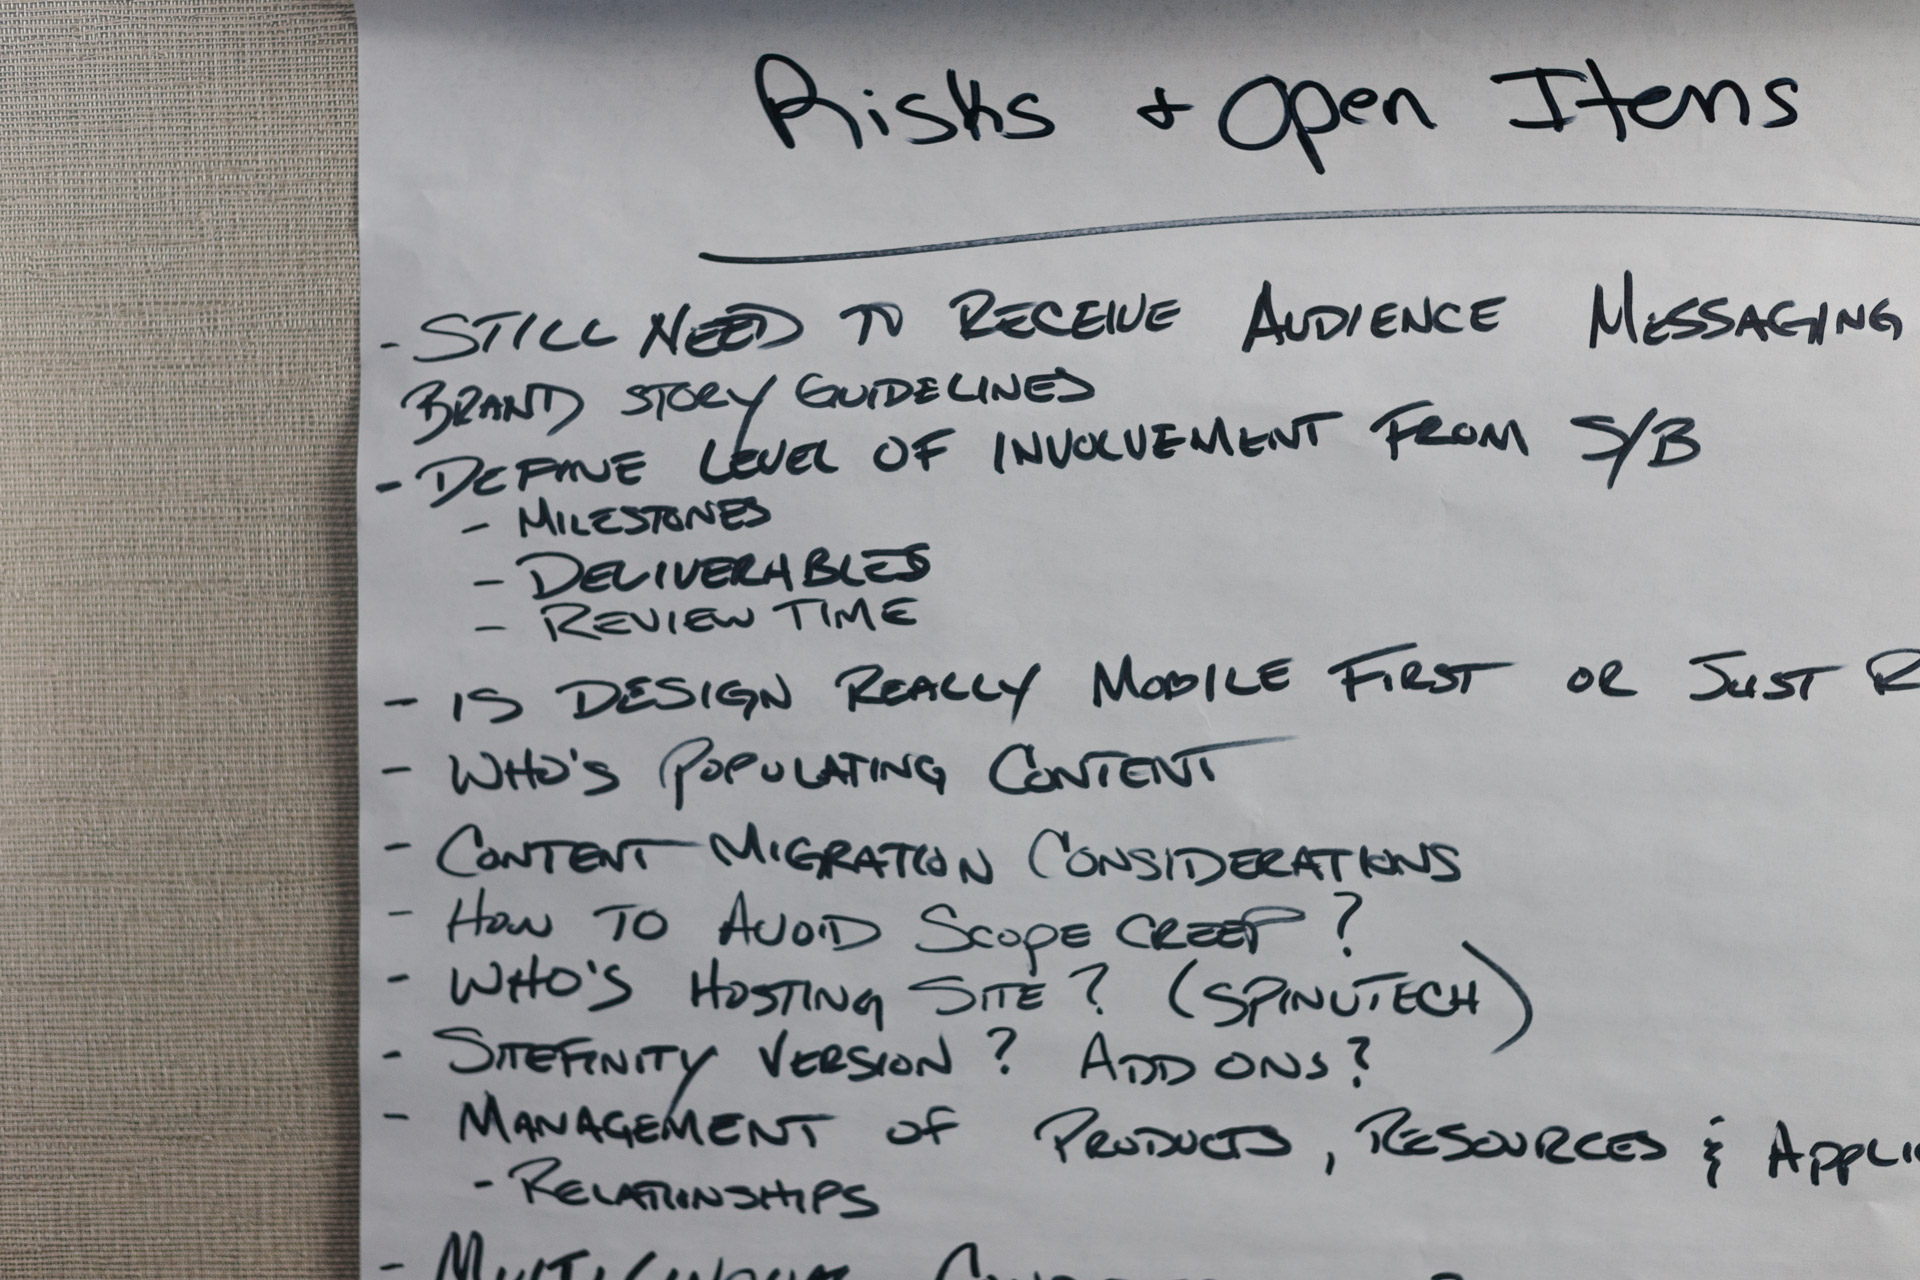 Risks + Open Items
- STILL NEED TO RECEIVE AUDIENCE MESSAGING
BRAND STORY GUIDELINES
- DEFINE LEVEL OF INVOLVEMENT FROM S/B
- MILESTONES
- DELIVERABLES
- REVIEW TIME
- IS DESIGN REALLY MOBILE FIRST OR JUST R
- WHO'S POPULATING CONTENT
- CONTENT MIGRATION CONSIDERATIONS
- HOW TO AVOID SCOPE CREEP?
- WHO'S HOSTING SITE? (SPINUTECH)
- SITEFINITY VERSION? ADD ONS?
- MANAGEMENT OF PRODUCTS, RESOURCES & APPLI
- RELATIONSHIPS
- MULTILINGUAL